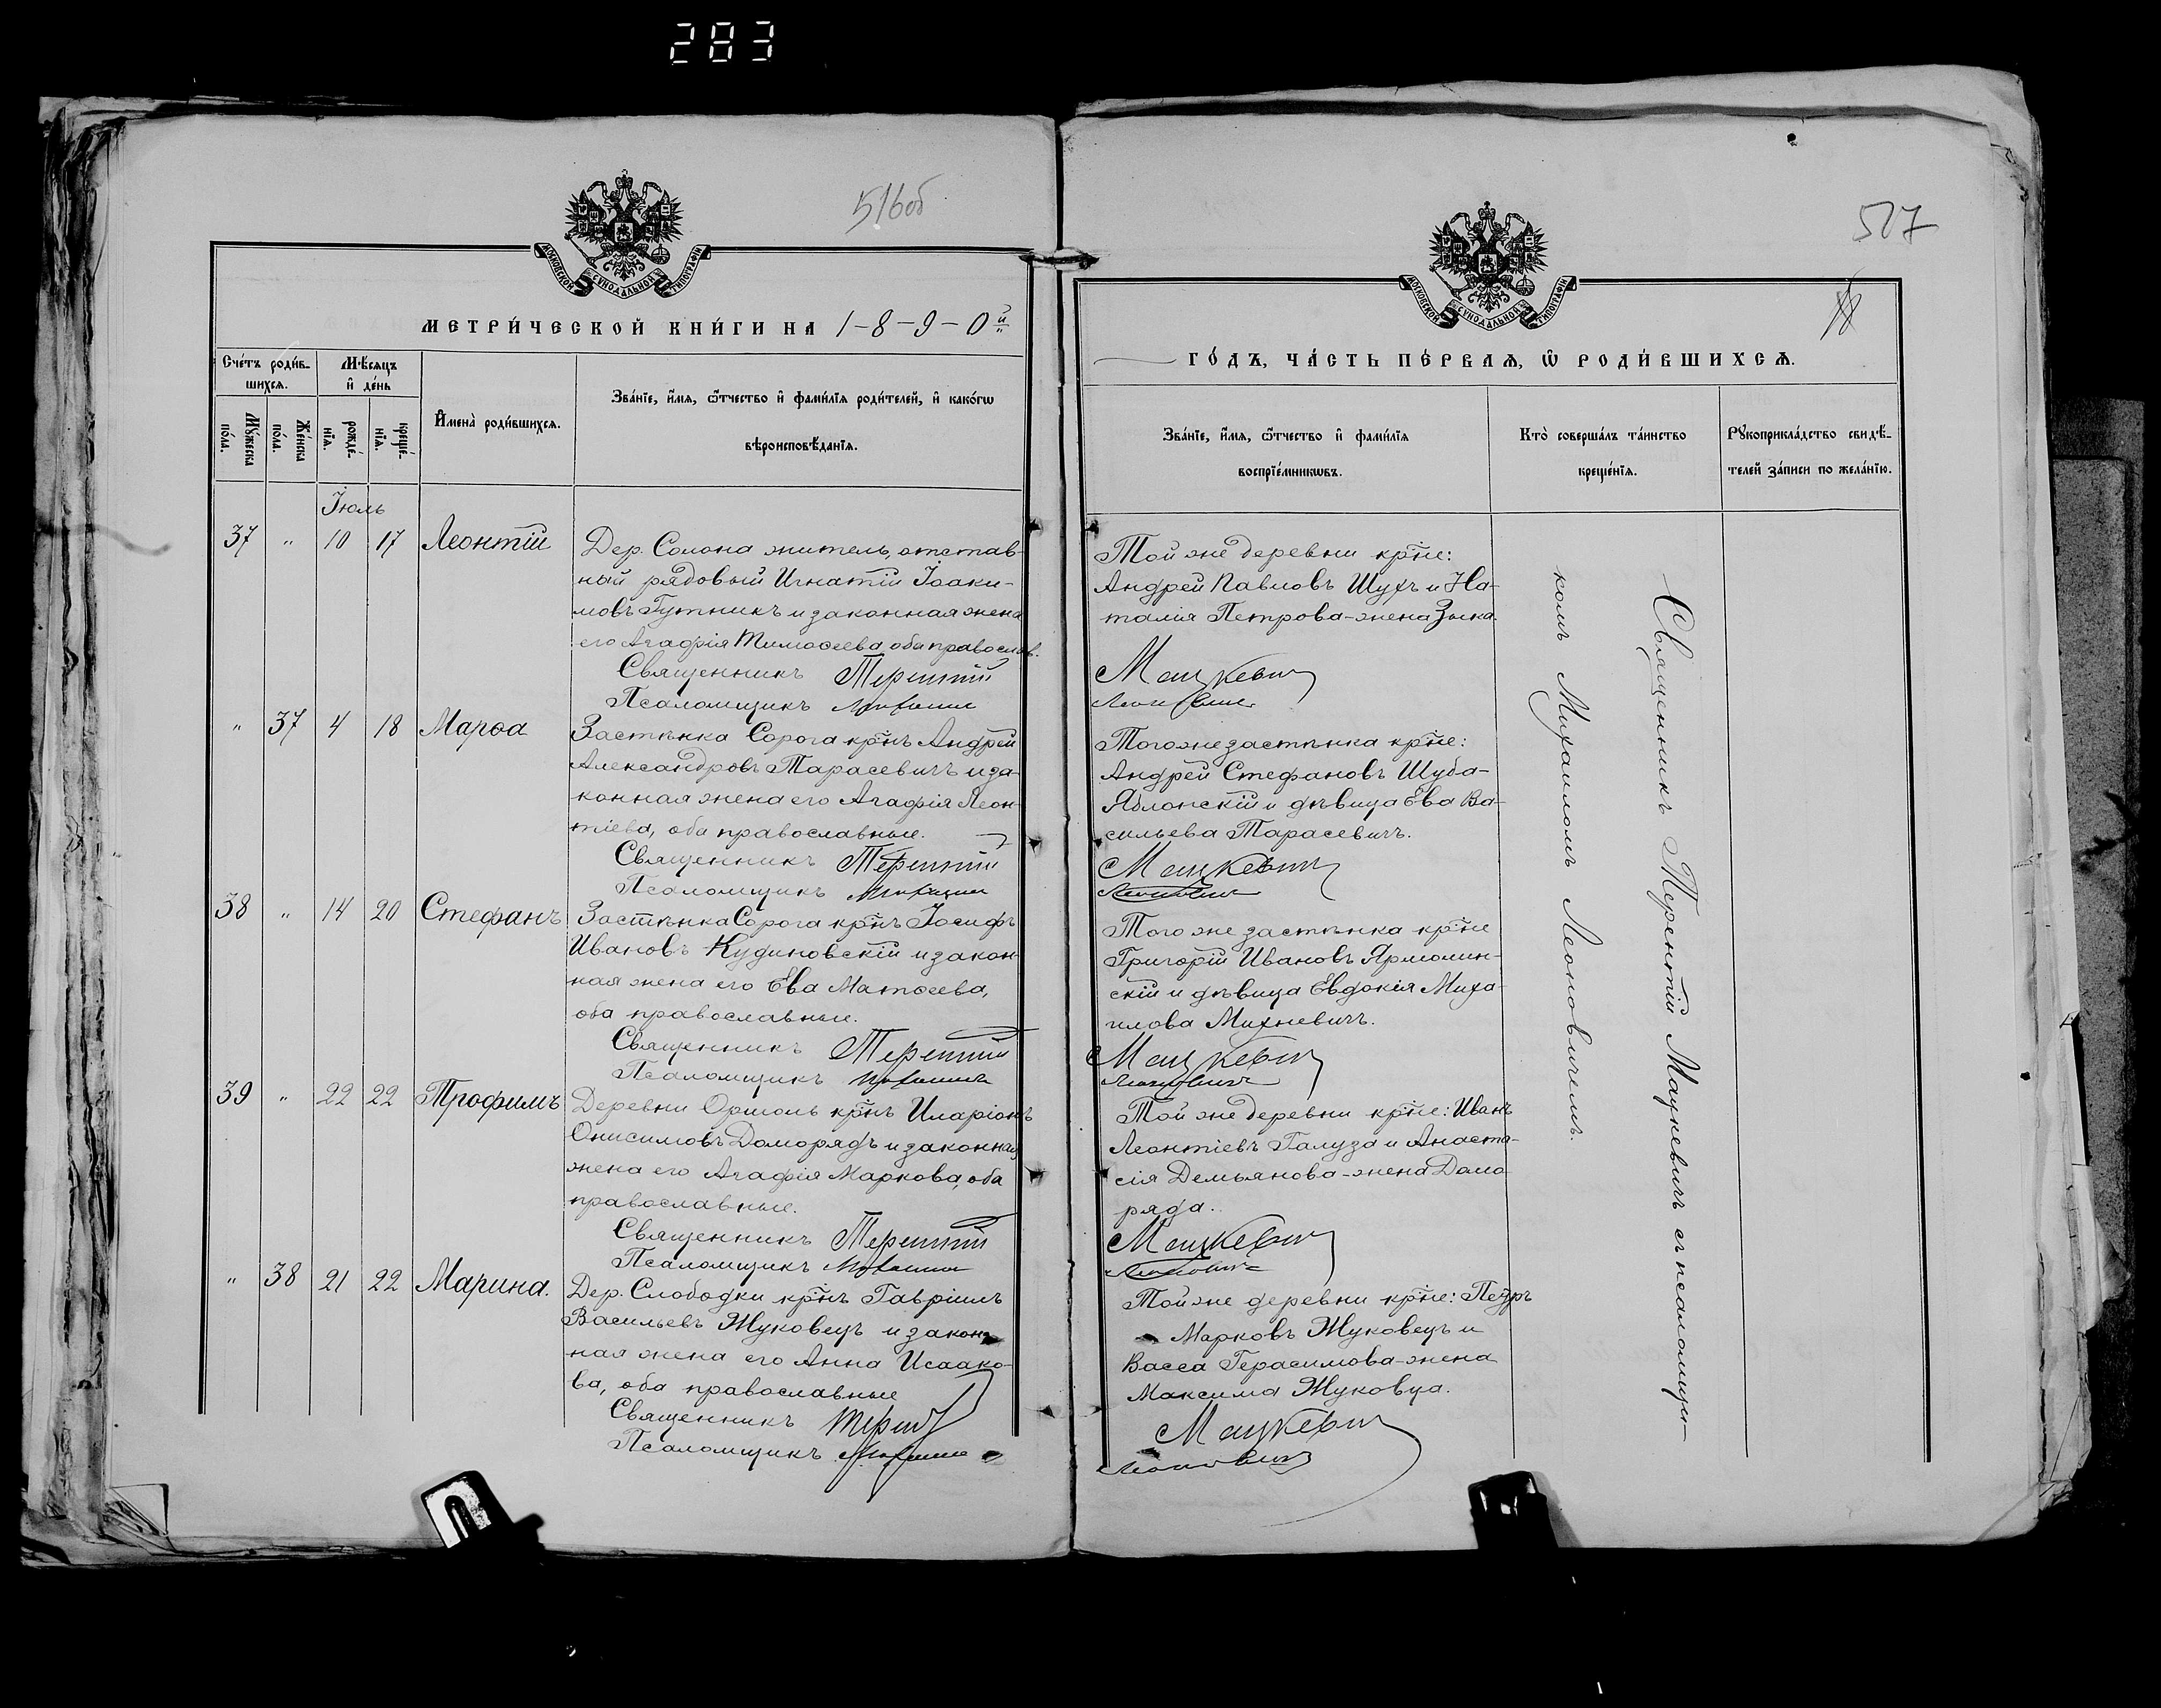 283
516об
МОСКОВСКОЙ СѴНОДАЛЬНОЙ ТИПОГРАФІИ
МЕТРИ́ЧЕСКОЙ КНИ́ГИ НА 1-8-9-0й
Сче́тъ роди́в-
шихсѧ.
Мѣ́сяцъ
и҆ де́нь
Мꙋ́жеска
по́ла.
Же́нска
по́ла.
рожде́-
нїѧ.
креще́-
нїѧ.
И҆мена̀ роди́вшихсѧ.
Зва́нїе, и҆́мѧ, ѻ҆́тчество и҆ фами́лїѧ роди́телей, и҆ како́гѡ
вѣроисповѣ́данїѧ.
Іюль
37 " 10 17 Леонтій
Дер. Солона житель, отстав-
ный рядовый Игнатій Іоаки-
мовъ Гутникъ и законная жена
его Агафія Тимоѳеева, оба православ.
Священникъ Терентій
Псаломщикъ Михаилъ
" 37 4 18 Марѳа
Застѣнка Сорога крн̃ъ Андрей
Александровъ Тарасевичъ и за-
конная жена его Агафія Леон-
тіева, оба православные.
Священникъ Терентій
Псаломщикъ Михаилъ
38 " 14 20 Стефанъ
Застѣнка Сорога крн̃ъ Іосифъ
Ивановъ Кудиновскій и закон-
ная жена его Ева Матѳеева,
оба православные.
Священникъ Терентій
Псаломщикъ Михаилъ
39 " 22 22 Трофимъ
Деревни Ормоль крн̃ъ Иларіонъ
Онисимовъ Доморядъ и законная
жена его Агафія Маркова, оба
православные.
Священникъ Терентій
Псаломщикъ Михаилъ
" 38 21 22 Марина.
Дер. Слободки крн̃ъ Гавріилъ
Васильевъ Жуковецъ и закон-
ная жена его Анна Исаако-
ва, оба православные
Священникъ Терентій
Псаломщикъ Михаилъ
517
МОСКОВСКОЙ СѴНОДАЛЬНОЙ ТИПОГРАФІИ
ГО́ДЪ, ЧА́СТЬ ПЕ́РВАѦ, Ѡ҆ РОДИ́ВШИХСѦ.
Зва́нїе, и҆́мѧ, ѻ҆́тчество и҆ фами́лїѧ
воспрїе́мникѡвъ.
Кто̀ соверша́лъ та́инство
креще́нїѧ.
Рꙋкоприкла́дство свидѣ́-
телей за́писи по жела́нїю.
Той же деревни крн̃е:
Андрей Павловъ Шухъ и На-
талія Петрова-жена Зыка.
Мацкевич
Леонович
Того же застѣнка крн̃е:
Андрей Стефановъ Шуба-
Яблонскій и дѣвица Ева Ва-
сильева Тарасевичъ.
Мацкевич
Леонович
Того же застѣнка крн̃е
Григорій Ивановъ Ярмолин-
скій и дѣвица Евдокія Миха-
илова Михневичъ.
Мацкевич
Леонович
Той же деревни крн̃е: Иванъ
Леонтіевъ Галуза и Анаста-
сія Демьянова-жена Домо
ряда.
Мацкевич
Леонович
Той же деревни крн̃е: Петръ
Марковъ Жуковецъ и
Васса Герасимова-жена
Максима Жуковца.
Мацкевич
Леонович
Священникъ Терентій Мацкевичъ съ псаломщи-
комъ Михаиломъ Леоновичемъ.